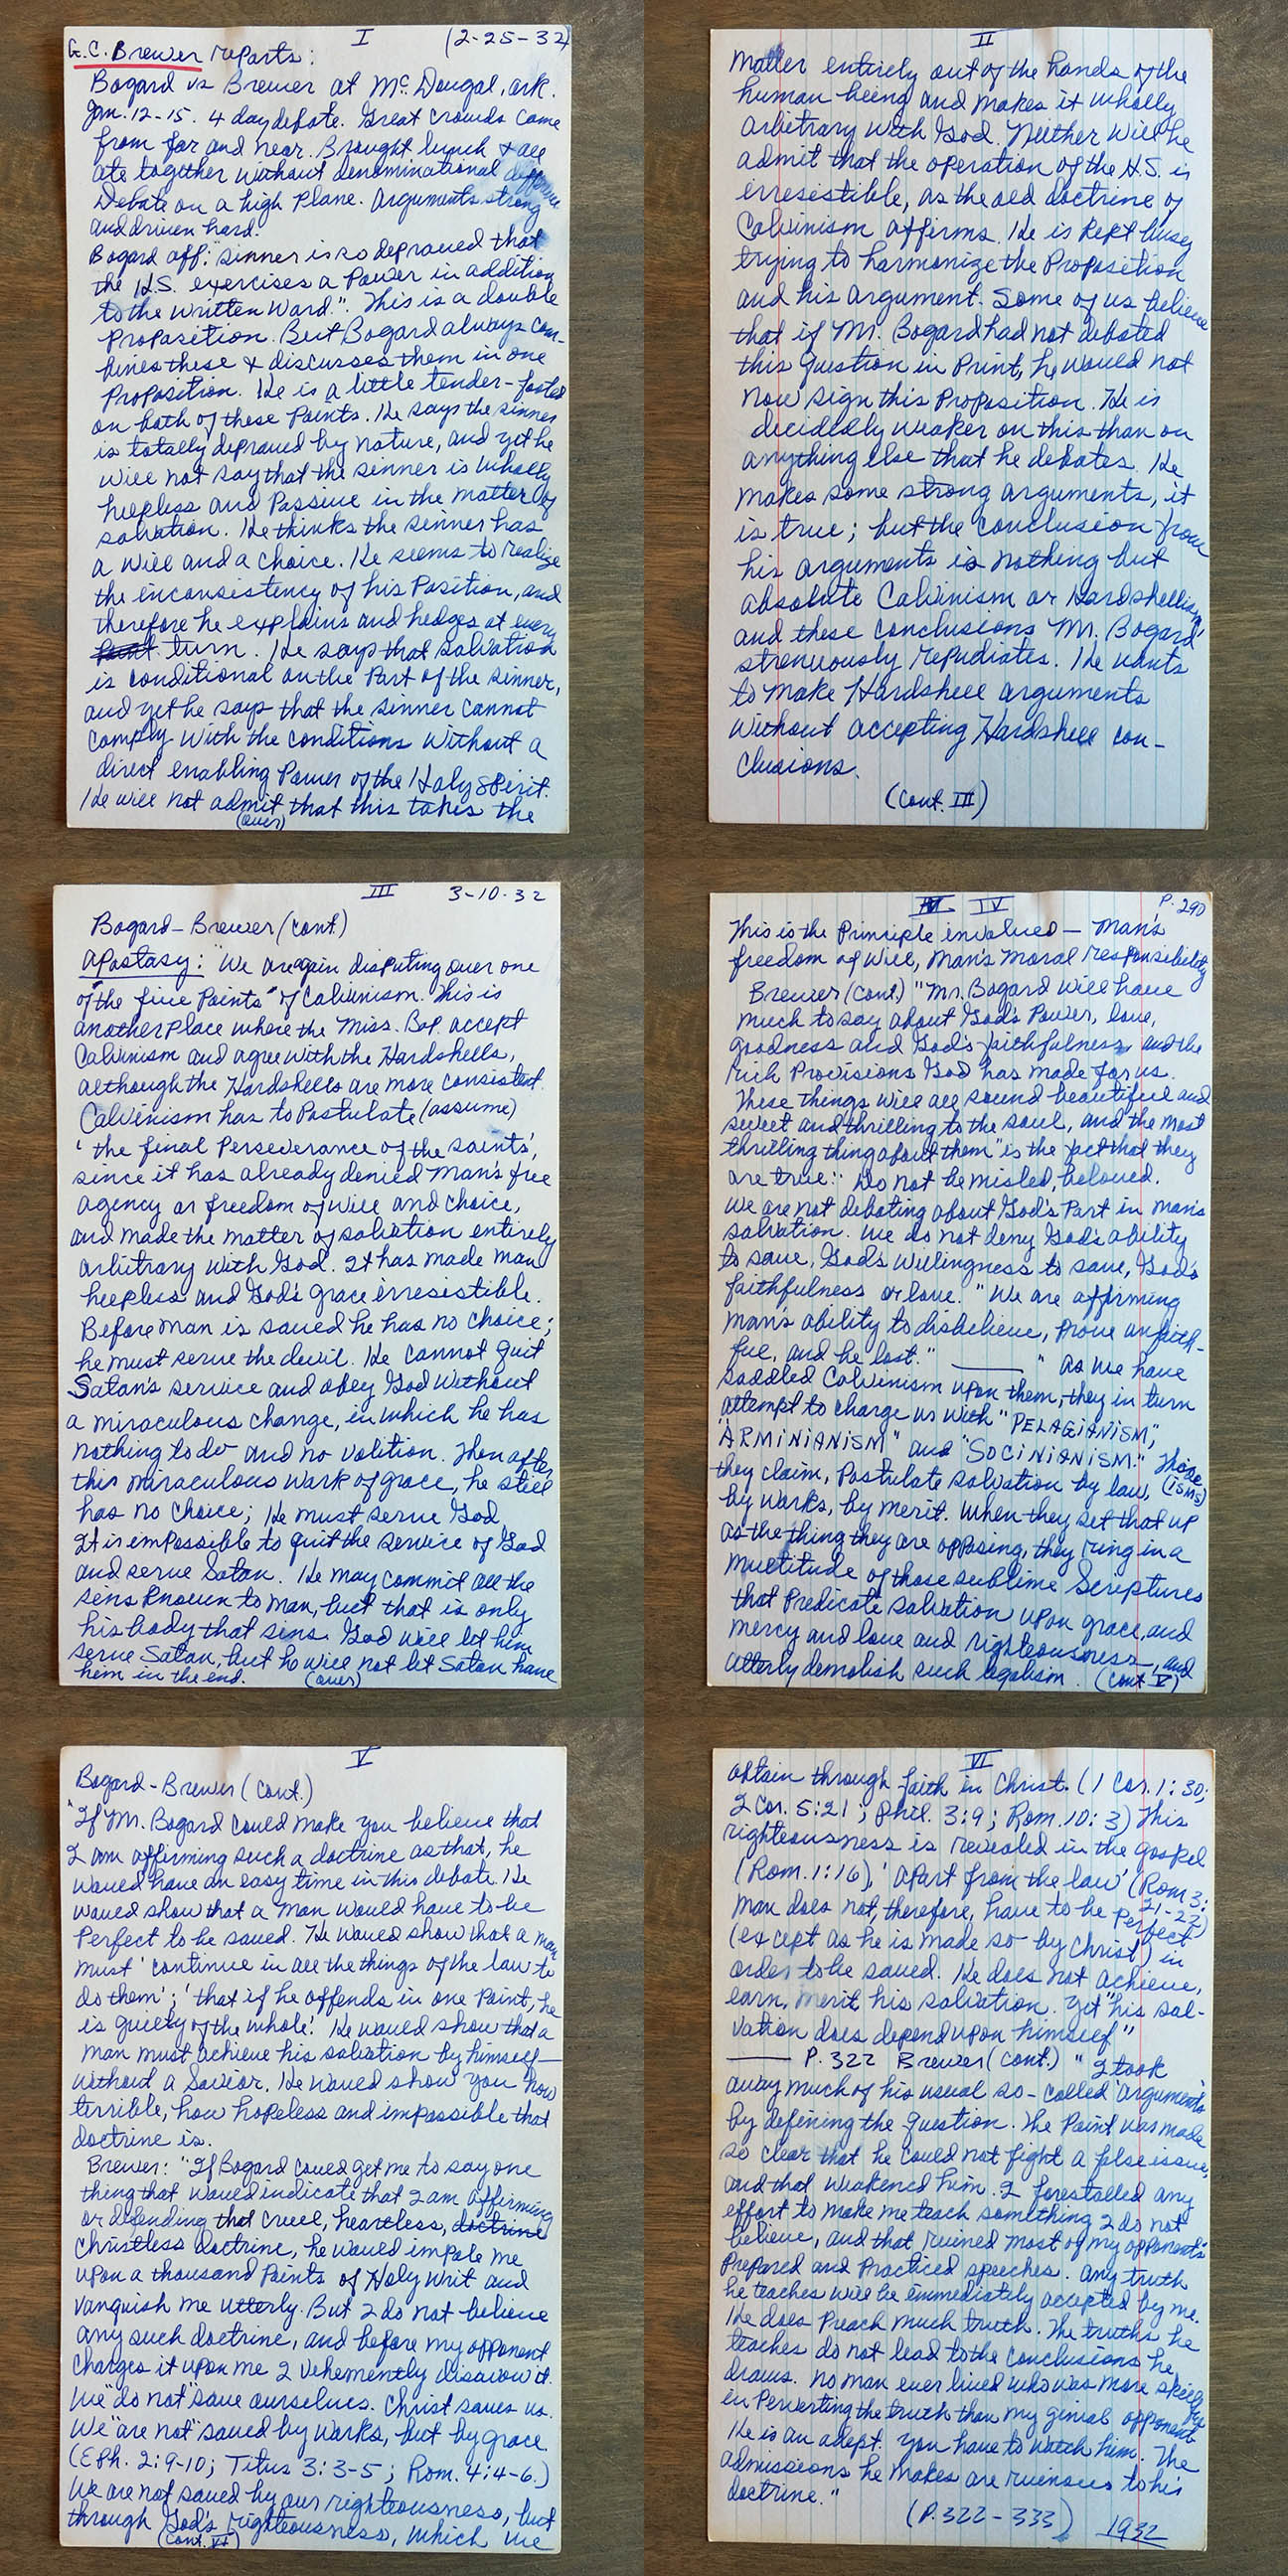 I (2-25-32)
G.C. Brewer reports:
Bogard vs Brewer at Mc Dougal, Ark.
Jan. 12-15. 4 day debate. Great crowds came
from far and near. Brought lunch & all
ate together without denominational difference
Debate on a high plane. Arguments strong
and driven hard.
Bogard aff: "Sinner is so depraved that
the H.S. exercises a Power in addition
to the written Word". This is a double
Proposition. But Bogard always com-
bines these & discusses them in one
Proposition. He is a little tender-footed
on both of these Points. He says the sinner
is totally depraved by nature, and yet he
will not say that the sinner is wholly
helpless and Passive in the matter of
salvation. He thinks the sinner has
a will and a choice. He seems to realize
the inconsistency of his Position, and
therefore he explains and hedges at every
turn. He says that salvation
is conditional on the Part of the sinner,
and yet he says that the sinner cannot
comply with the conditions without a
direct enabling Power of the Holy Spirit.
He will not admit that this takes the
(over)
II
matter entirely out of the hands of the
human being and makes it wholly
arbitrary with God. Neither will he
admit that the operation of the H.S. is
irresistible, as the old doctrine of
Calvinism affirms. He is kept busy
trying to harmonize the Proposition
and his argument. Some of us believe
that if Mr. Bogard had not debated
this question in Print, he would not
now sign this Proposition. He is
decidedly weaker on this than on
anything else that he debates. He
makes some strong arguments, it
is true; but the conclusion from
his arguments is nothing but
absolute Calvinism or Hardshellism
and these conclusions Mr. Bogard
strenuously repudiates. He wants
to make Hardshell arguments
without accepting Hardshell con-
clusions.
(cont. III)
III 3-10-32
Bogard-Brewer (cont.)
Apostasy: "We are again disputing over one
of the five Points" of Calvinism. This is
another Place where the Miss. Bap. accept
Calvinism and agree with the Hardshells,
although the Hardshells are more consistent.
Calvinism has to Postulate (assume)
'the final Perseverance of the saints',
since it has already denied man's free
agency or freedom of will and choice,
and made the matter of salvation entirely
arbitrary with God. It has made man
helpless and God's grace irresistible.
Before man is saved he has no choice;
he must serve the devil. He cannot quit
Satan's service and obey God without
a miraculous change, in which he has
nothing to do and no volition. Then after
this miraculous work of grace, he still
has no choice; He must serve God.
It is impossible to quit the service of God
and serve Satan. He may commit all the
sins known to man, but that is only
his body that sins. God will let him
serve Satan, but he will not let Satan have
him in the end. (over)
IV P. 290
This is the Principle involved - Man's
freedom of will, man's moral responsibility
Brewer (cont.) "Mr. Bogard will have
much to say about God's Power, love,
goodness and God's faithfulness and the
rich Provisions God has made for us.
These things will all sound beautiful and
sweet and thrilling to the soul, and the most
thrilling thing about them "is the fact that they
are true." Do not be misled, beloved.
We are not debating about God's Part in man's
salvation. We do not deny God's ability
to save, God's willingness to save, God's
faithfulness or love. "We are affirming
man's ability to disbelieve, prove unfaith-
ful, and be lost." ——— " As we have
saddled Calvinism upon them, they in turn
attempt to charge us with "PELAGIANISM",
"ARMINIANISM" and "SOCINIANISM." Those
they claim, Postulate salvation by law, (isms)
by works, by merit. When they set that up
as the thing they are opposing, they ring in a
multitude of those sublime Scriptures
that Predicate salvation upon grace, and
mercy and love and righteousness, and
utterly demolish such legalism. (cont V)
V
Bogard-Brewer (cont.)
"If Mr. Bogard could make you believe that
I am affirming such a doctrine as that, he
would have an easy time in this debate. He
would show that a man would have to be
Perfect to be saved. He would show that a man
must 'continue in all the things of the law to
do them'; 'that if he offends in one Point, he
is guilty of the whole.' He would show that a
man must achieve his salvation by himself—
without a Savior. He would show you how
terrible, how hopeless and impossible that
doctrine is.
Brewer: "If Bogard could get me to say one
thing that would indicate that I am affirming
or defending that cruel, heartless, doctrine
Christless doctrine, he would impale me
upon a thousand Points of Holy Writ and
vanquish me utterly. But I do not believe
any such doctrine, and before my opponent
charges it upon me I vehemently disavow it.
We "do not" save ourselves. Christ saves us.
We "are not" saved by works, but by grace
(Eph. 2:9-10; Titus 3:3-5; Rom. 4:4-6.)
We are not saved by our righteousness, but
through God's righteousness, which we
(cont. VI)
VI
obtain through faith in Christ. (1 Cor. 1:30;
2 Cor. 5:21; Phil. 3:9; Rom. 10:3) This
righteousness is revealed in the gospel
(Rom. 1:16), 'apart from the law' (Rom 3:
21-22)
man does not, therefore, have to be perfect
(except as he is made so by Christ) in
order to be saved. He does not achieve,
earn, merit his salvation. Yet "his sal-
vation does depend upon himself"
——— P. 322 Brewer (cont.) "I took
away much of his usual so-called 'arguments'
by defining the question. The Point was made
so clear that he could not fight a false issue,
and that weakened him. I forestalled any
effort to make me teach something I do not
believe, and that ruined most of my opponent's
Prepared and Practiced speeches. Any truth
he teaches will be immediately accepted by me.
He does Preach much truth. The truths he
teaches do not lead to the conclusions he
draws. No man ever lived who was more skillful
in Perverting the truth than my genial opponent
He is an adept. You have to watch him. The
admissions he makes are ruinous to his
doctrine."
(P. 322-333) 1932